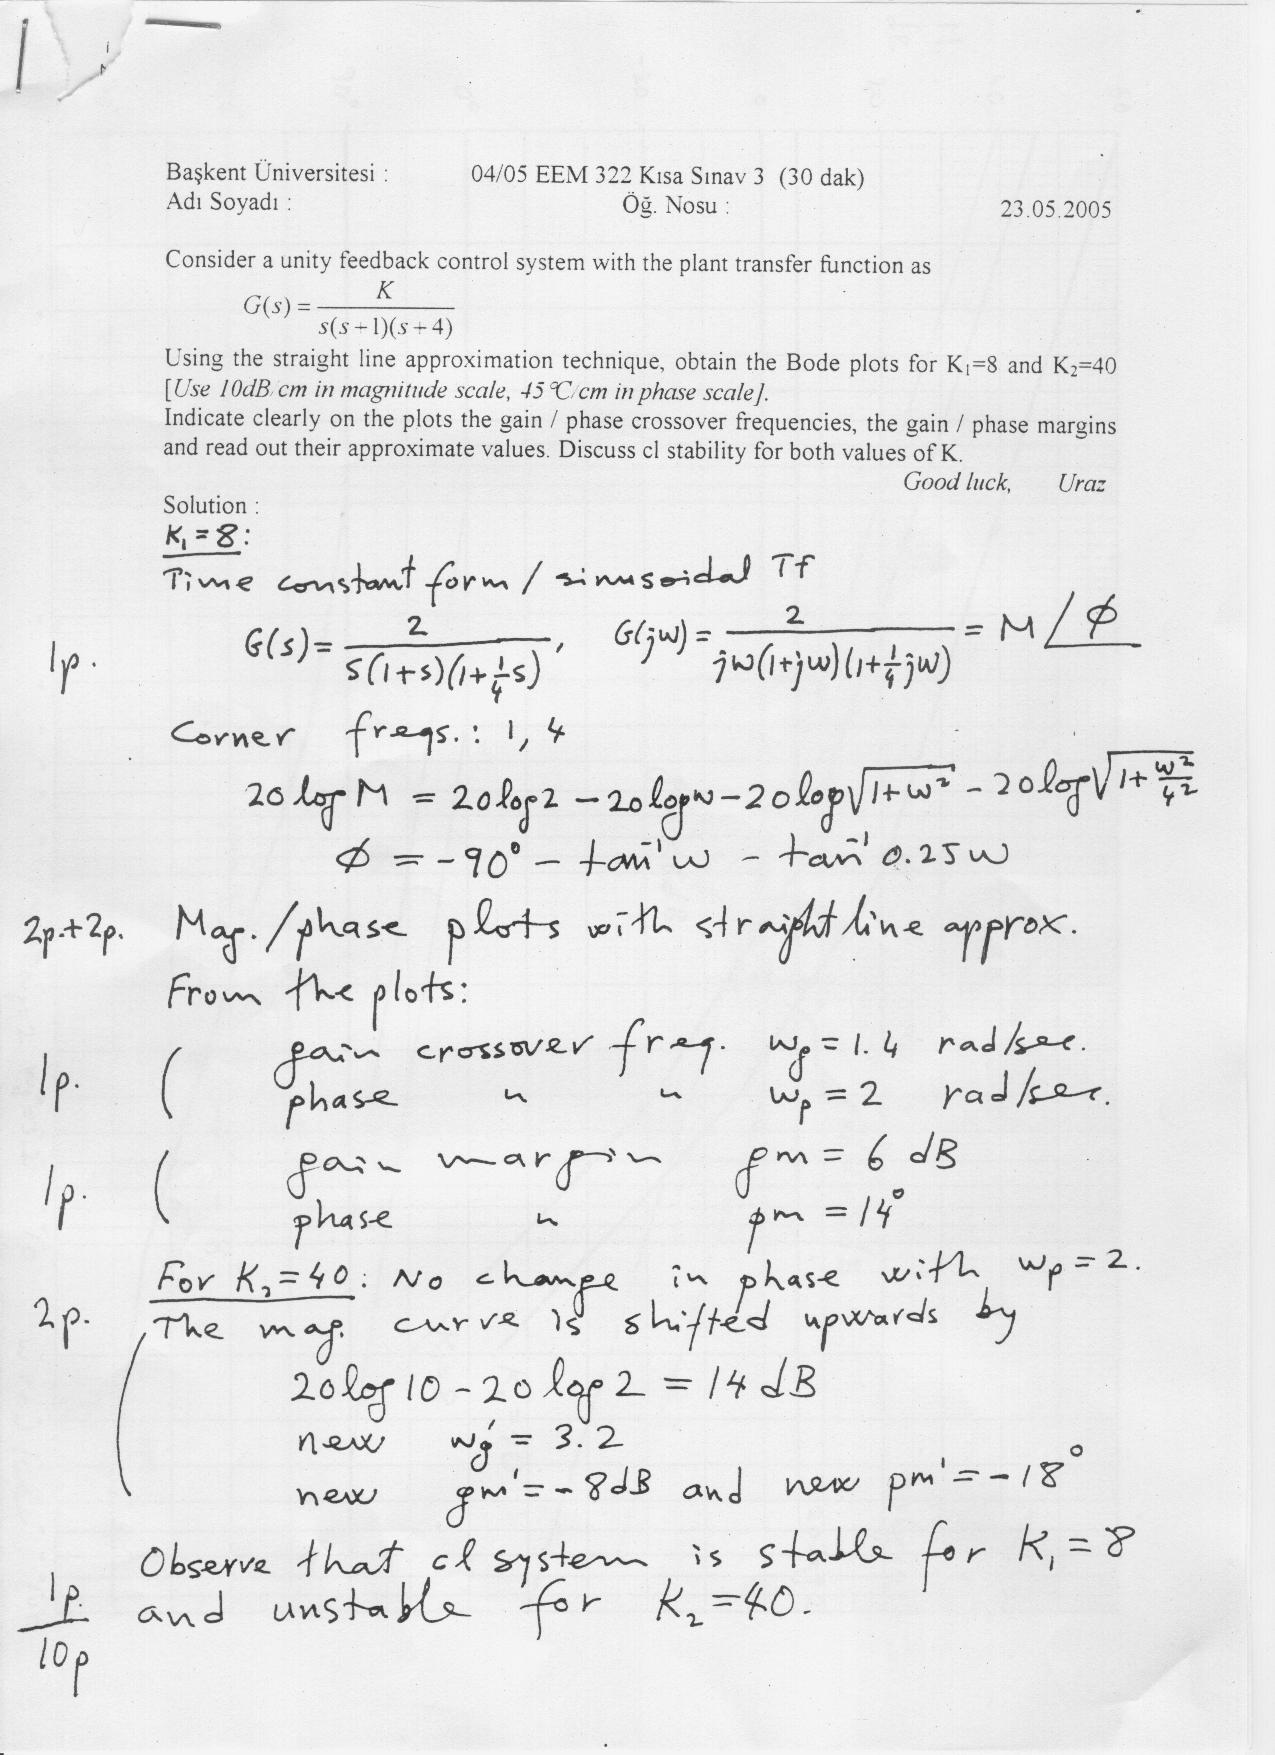 Başkent Üniversitesi : 04/05 EEM 322 Kısa Sınav 3 (30 dak)
Adı Soyadı : Öğ. Nosu : 23.05.2005
Consider a unity feedback control system with the plant transfer function as
G(s) = K / s(s+1)(s+4)
Using the straight line approximation technique, obtain the Bode plots for K₁=8 and K₂=40
[Use 10dB/cm in magnitude scale, 45 °C/cm in phase scale].
Indicate clearly on the plots the gain / phase crossover frequencies, the gain / phase margins
and read out their approximate values. Discuss cl stability for both values of K.
Good luck, Uraz
Solution :
K₁ = 8 :
Time constant form / sinusoidal Tf
1p. G(s) = 2 / s(1+s)(1+¼s) , G(jw) = 2 / jw(1+jw)(1+¼jw) = M∠Ø
Corner freqs. : 1, 4
20 log M = 20 log 2 − 20 log w − 20 log √(1+w²) − 20 log √(1+w²/4²)
Ø = −90° − tan⁻¹ w − tan⁻¹ 0.25w
2p.+2p. Mag. / phase plots with straight line approx.
From the plots:
1p. ( gain crossover freq. wg = 1.4 rad/sec.
phase " " wp = 2 rad/sec.
1p. ( gain margin gm = 6 dB
phase " pm = 14°
For K₂=40 : No change in phase with wp = 2.
2p. The mag. curve is shifted upwards by
20 log 10 − 20 log 2 = 14 dB
new wg' = 3.2
new gm' = −8dB and new pm' = −18°
Observe that cl system is stable for K₁ = 8
1p. and unstable for K₂ = 40.
10p